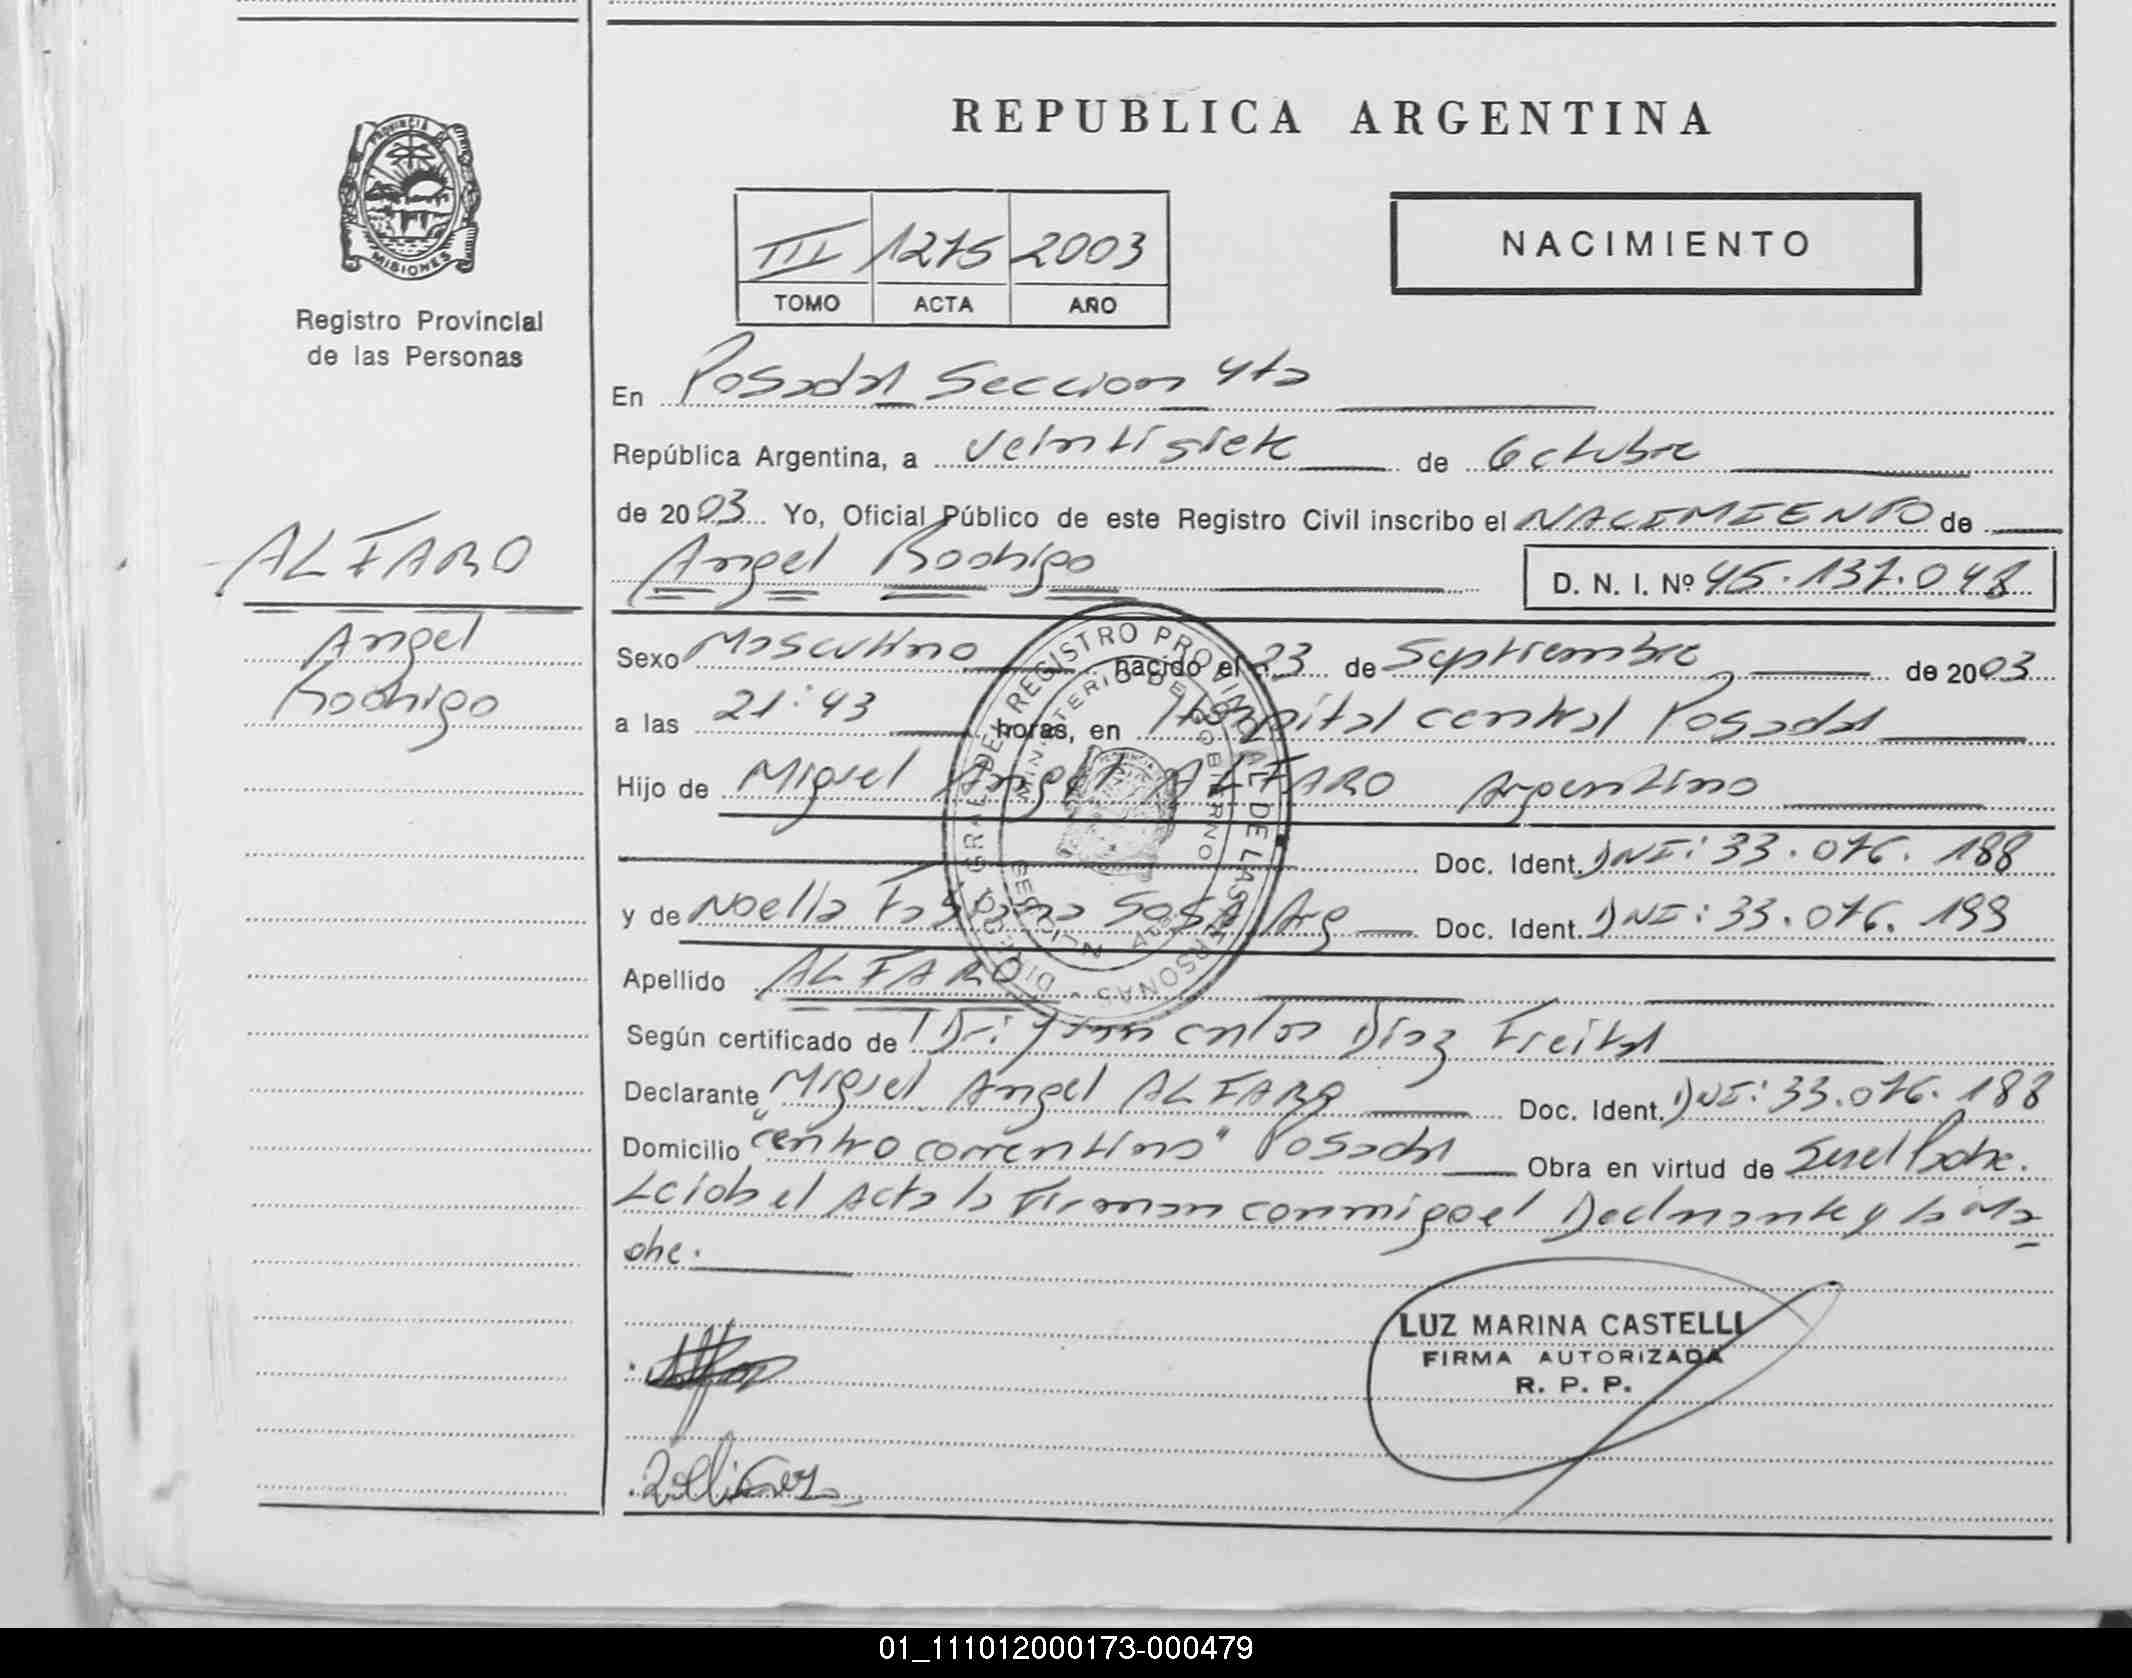 REPUBLICA ARGENTINA
PROVINCIA DE
MISIONES
Registro Provincial
de las Personas
III 1275 2003
TOMO ACTA AÑO
NACIMIENTO
En Posadas Seccion 4ta
República Argentina, a veintisiete de Octubre
de 2003 Yo, Oficial Público de este Registro Civil inscribo el NACIMIENTO de
Angel Rodrigo D. N. I. Nº 45.137.048
ALFARO
Angel
Rodrigo
Sexo Masculino nacido el 23 de Septiembre de 2003
a las 21:43 horas, en Hospital central Posadas
Hijo de Miguel Angel ALFARO Argentino
Doc. Ident. DNI: 33.076.188
y de Noelia Sosa Arg Doc. Ident. DNI: 33.076.199
Apellido ALFARO
Según certificado de Dr: Juan carlos Diaz Freitas
Declarante Miguel Angel ALFARO Doc. Ident. DNI: 33.076.188
Domicilio "centro correntino" Posadas Obra en virtud de Ser el Padre.
Leida el Acta la Firman conmigo el Declarante y la Ma
dre.
DIRECC. GRAL. DEL REGISTRO PROVINCIAL DE LAS PERSONAS
MINISTERIO DE GOBIERNO
MISIONES
LUZ MARINA CASTELLI
FIRMA AUTORIZADA
R. P. P.
01_111012000173-000479